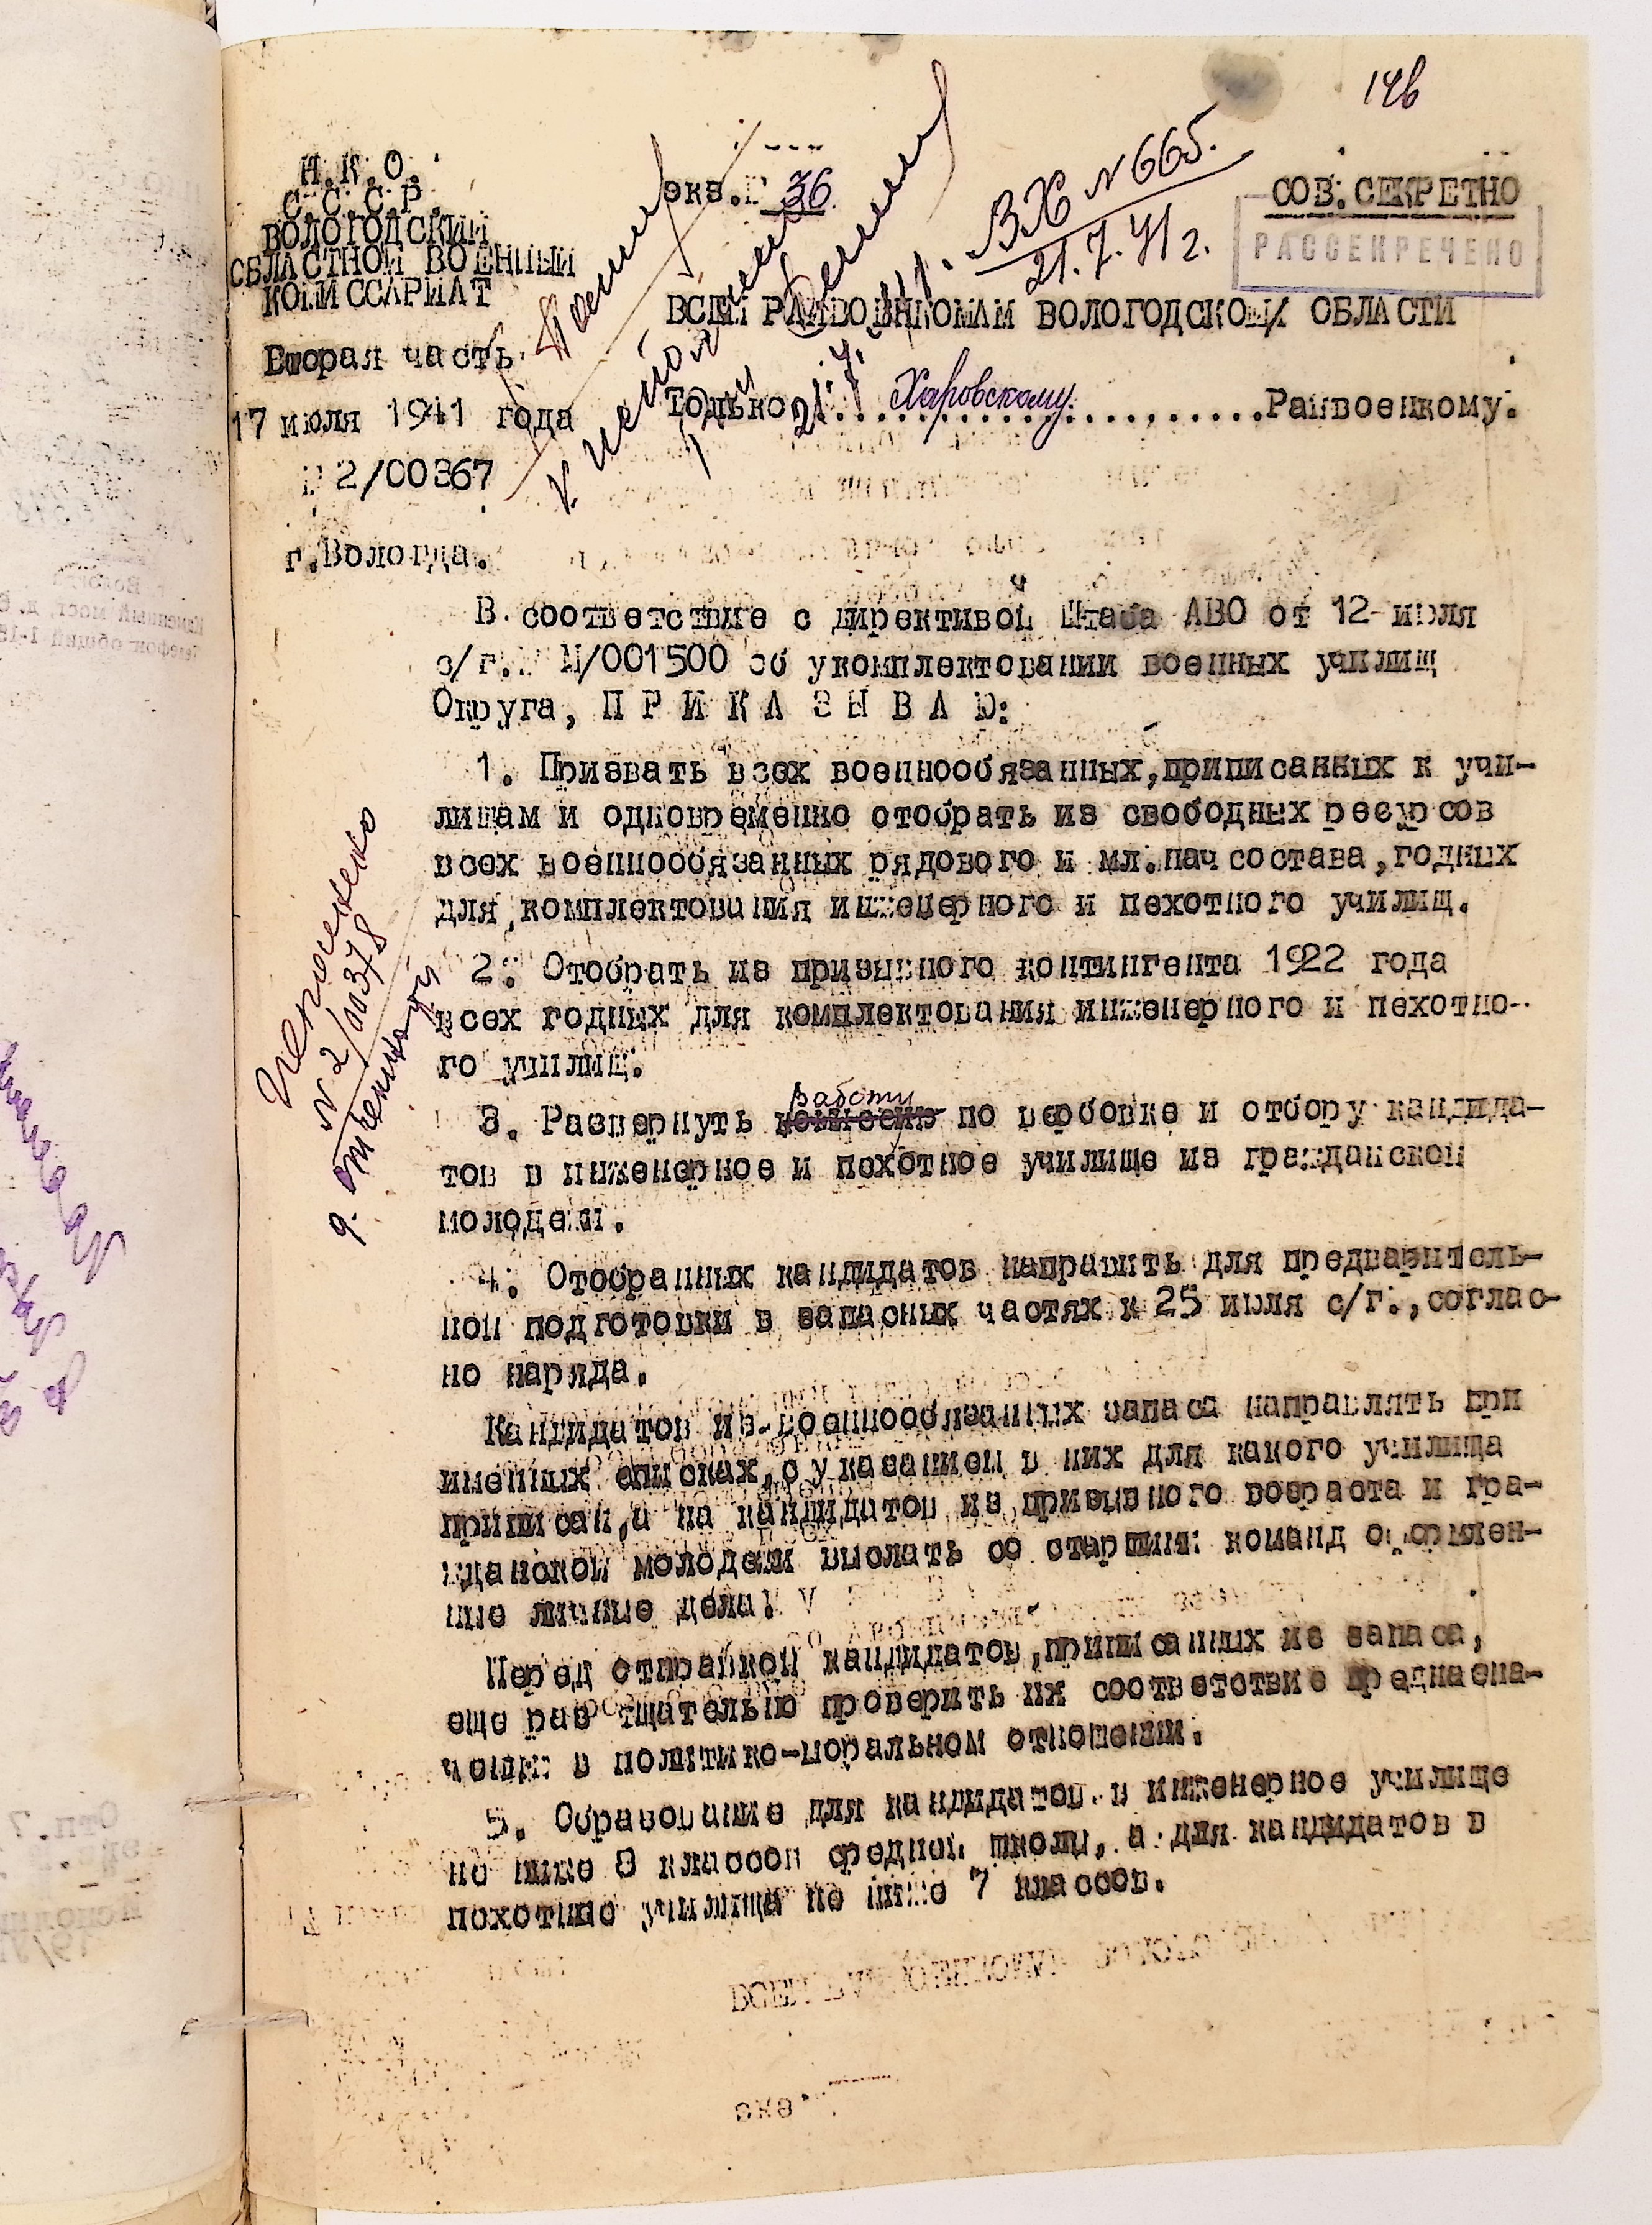 146
Н.К.О.
С.С.С.Р.
ВОЛОГОДСКИЙ
ОБЛАСТНОЙ ВОЕННЫЙ
КОМИССАРИАТ
Вторая часть
17 июля 1941 года
№ 2/00367
г.Вологда.
экз.№ 36.
ВХ № 665.
21.7.41 г.
СОВ. СЕКРЕТНО
РАССЕКРЕЧЕНО
ВСЕМ РАЙВОЕНКОМАМ ВОЛОГОДСКОЙ ОБЛАСТИ
Только Харовскому Райвоенкому.
к исполнению
В соответствие с директивой Штаба АВО от 12 июля
с/г. № М/001500 об укомплектовании военных училищ
Округа, П Р И К А З Ы В А Ю:
1. Призвать всех военнообязанных,приписанных к учи-
лищам и одновременно отобрать из свободных ресурсов
всех военнообязанных рядового и мл.начсостава,годных
для комплектования инженерного и пехотного училищ.
2. Отобрать из призывного контингента 1922 года
всех годных для комплектования инженерного и пехотно-
го училищ.
работу
3. Развернуть комиссию по вербовке и отбору кандида-
тов в инженерное и пехотное училище из гражданской
молодежи.
4. Отобранных кандидатов направить для предваритель-
ной подготовки в запасных частях к 25 июля с/г.,соглас-
но наряда.
Кандидатов из военнообязанных запаса направлять при
именных списках,с указанием в них для какого училища
приписан,а на кандидатов из призывного возраста и гра-
жданской молодежи выслать со старшими команд оформлен-
ные личные дела.
Перед отправкой кандидатов,приписанных из запаса,
еще раз тщательно проверить их соответствие предназна-
чению в политико-моральном отношении.
5. Образование для кандидатов в инженерное училище
не ниже 8 классов средней школы, а для кандидатов в
пехотное училище не ниже 7 классов.
№ 2/00378